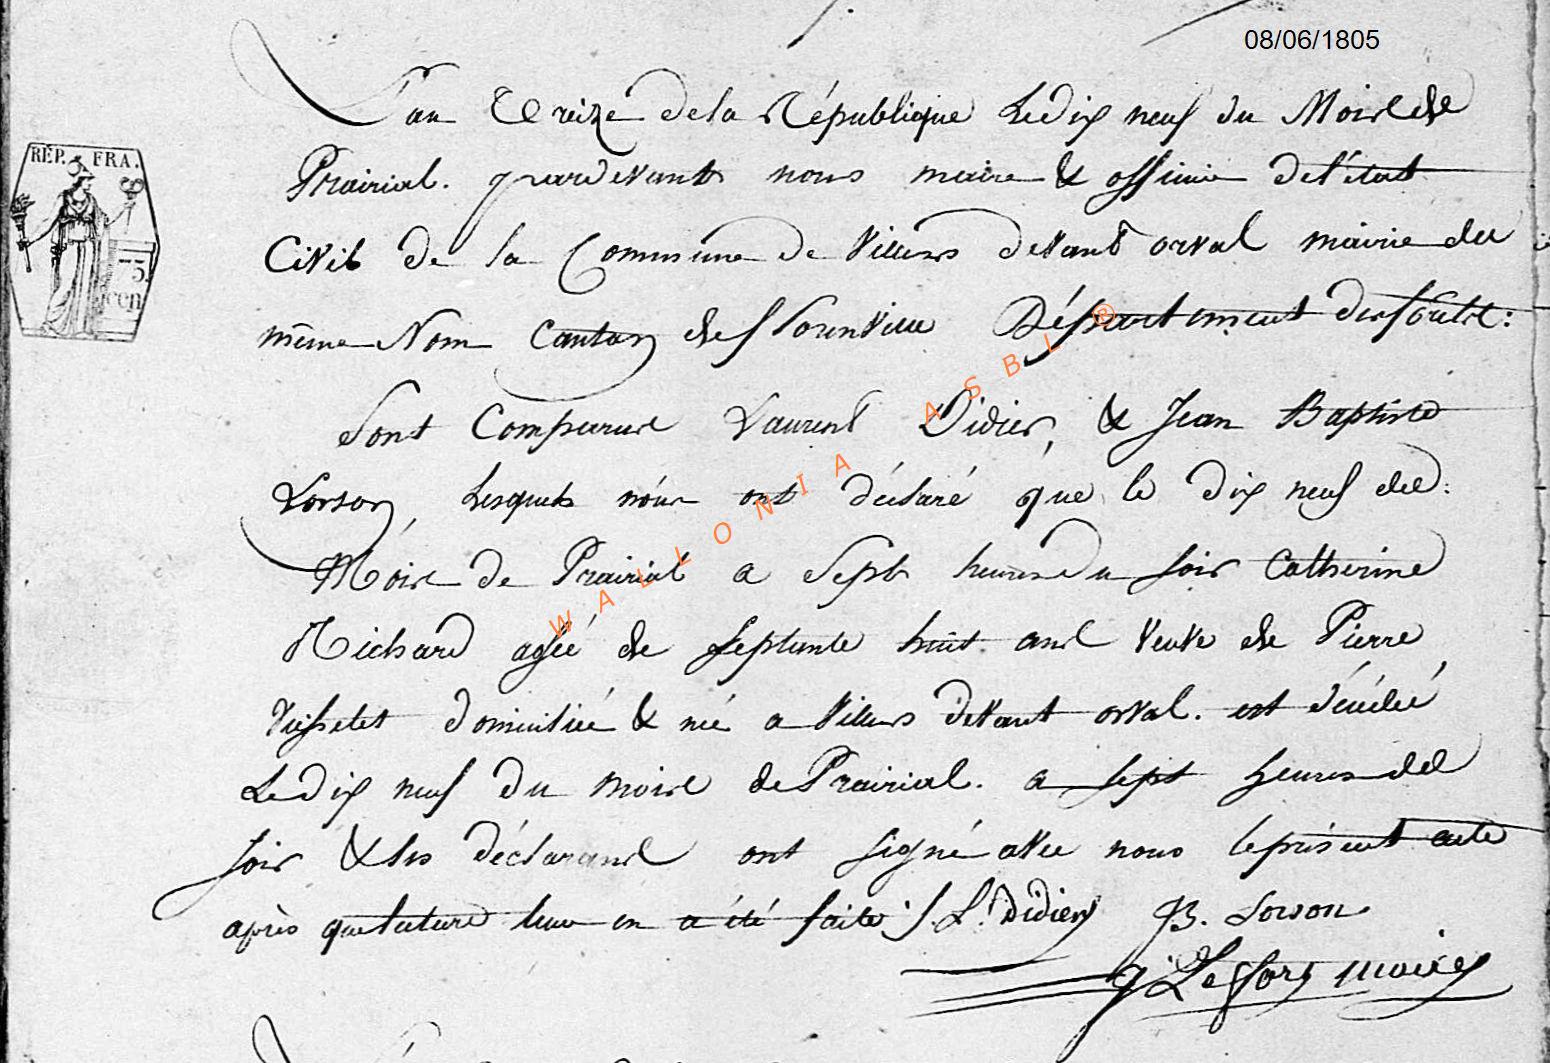 08/06/1805
L'an treize de la République le dix neuf du Mois de
RÉP. FRA.
Prairial. pardevant nous maire & officier de l'état
Civil de la Commune de Villers devant orval mairie du
75 cen
même Nom Canton de florenville Département des forêts:
Sont Comparus Laurent Didier, & Jean Baptiste
Lorson, lesquels nous ont déclaré que le dix neuf du
Mois de Prairial a Sept heures du soir Catherine
Richard agée de septante huit ans veuve de Pierre
domiciliée & née a Villers devant orval. est décédée
Le dix neuf du mois de Prairial. a sept heures du
soir & les déclarans ont signé avec nous le présent acte
après que lecture leur en a été faite L. Didier JB. Lorson
maire
WALLONIA ASBL ®